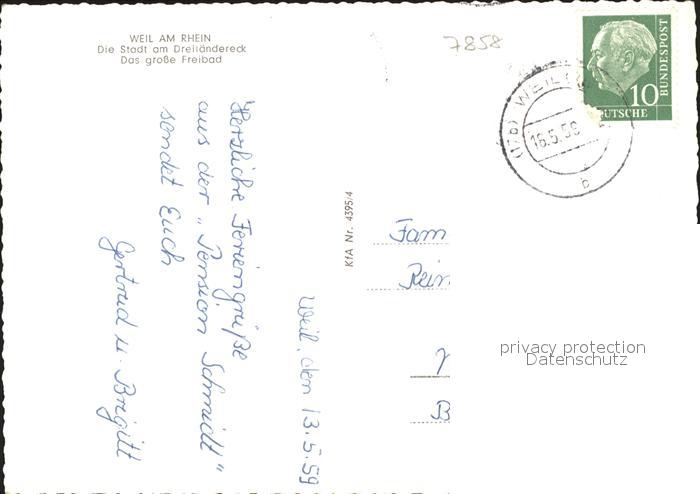 WEIL AM RHEIN
Die Stadt am Dreiländereck
Das große Freibad
7858
10
BUNDESPOST
DEUTSCHE
(17b) WEIL
16.5.59
b
Weil, den 13.5.59
Herzliche Feriengrüße
aus der „Pension Schmidt"
sendet Euch
Gertrud u. Brigitt
KfA Nr. 4395/4
Fam
Rein
B
privacy protection
Datenschutz